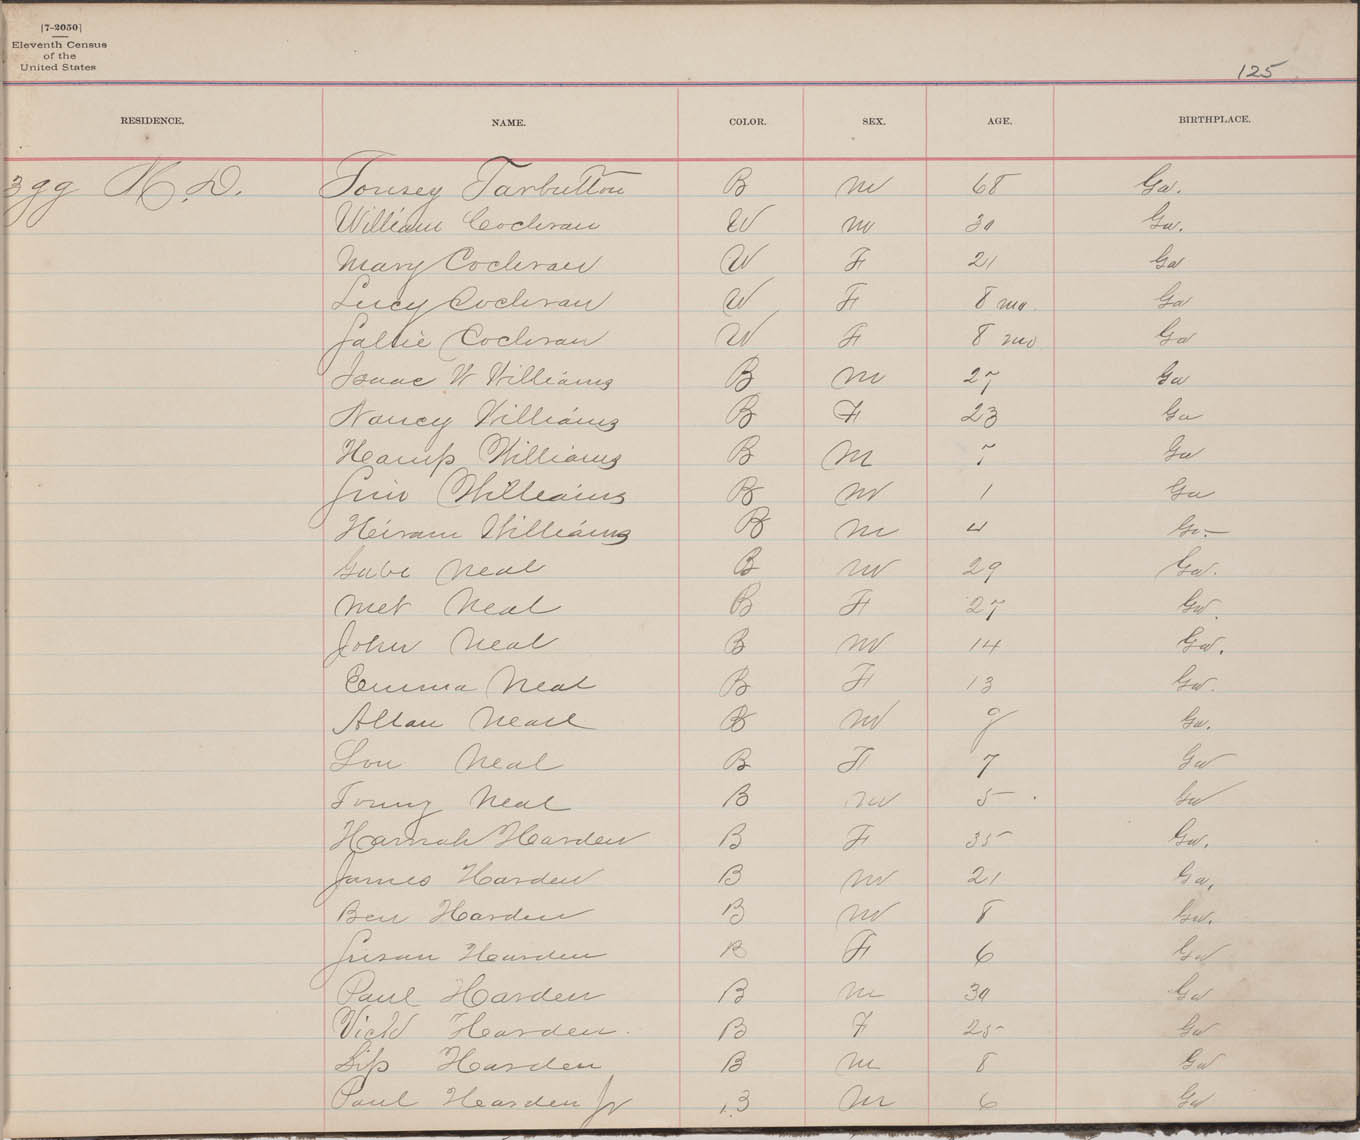 [7-2050]
Eleventh Census
of the
United States
125
RESIDENCE. NAME. COLOR. SEX. AGE. BIRTHPLACE.
M.D. Tousey Tarbutton B M 68 Ga.
William Cochran W M 30 Ga.
Mary Cochran W F 21 Ga
Lucy Cochran W F 8 mo. Ga
Sallie Cochran W F 8 mo Ga
Isaac W Williams B M 27 Ga
Nancy Williams B F 23 Ga
Hamp Williams B M 7 Ga
Williams B M 1 Ga
Heiram Williams B M 4 Ga
Gabe Neal B M 29 Ga.
Met Neal B F 27 Ga.
John Neal B M 14 Ga.
Emma Neal B F 13 Ga.
Allan Neall B M 9 Ga.
Lou Neal B F 7 Ga
Tomy Neal B M 5 Ga
Hannah Harden B F 35 Ga.
James Harden B M 21 Ga.
Ben Harden B M 8 Ga.
Susan Harden B F 6 Ga
Paul Harden B M 30 Ga
Harden B F 25 Ga
Sip Harden B M 8 Ga
Paul Hearden Jr B M 6 Ga